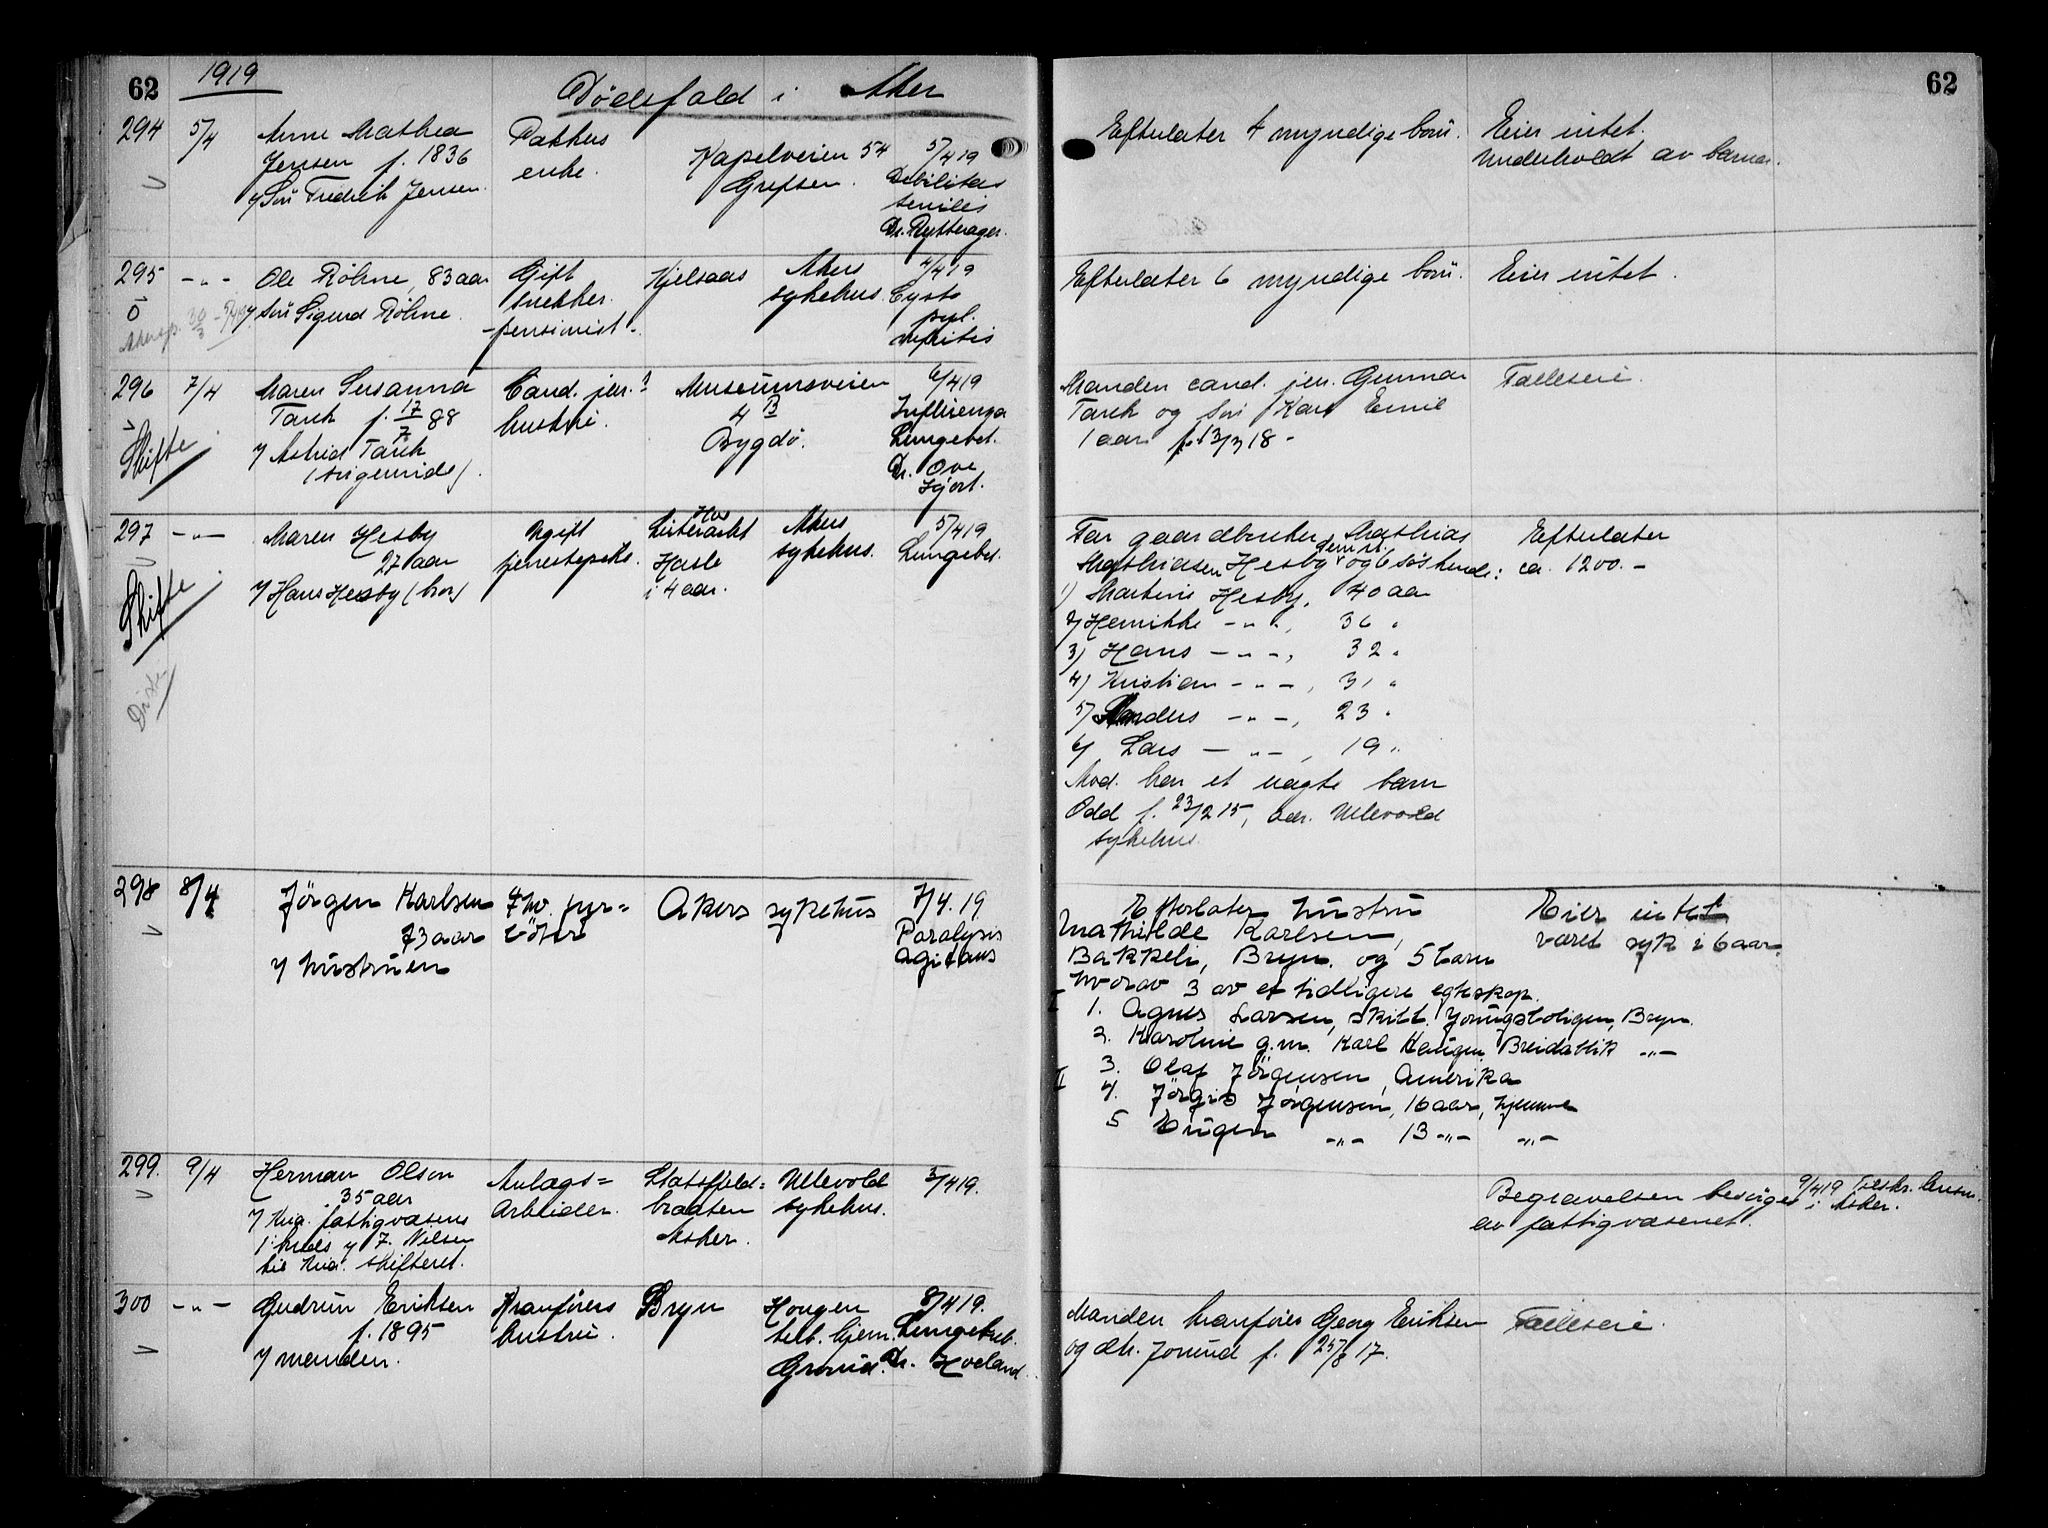 62 1919 Dødsfald i Aker 62
294 5/4 Anne Mathea
Jensen f. 1836
v/ Søn Fredrik Jensen.
Pakhus
enke.
Kapelveien 54
Grefsen.
5/4 19
Debilitas
senilis
Dr. Rytterager.
Efterlater 4 myndige børn.
Eier intet.
Underholdt av barna.
295 -"- Ole Röhne, 83 aar
v/ søn Sigurd Röhne.
Gift
snekker.
-pensionist-.
Kjelsaas
Akers
sykehus.
4/4 19
Cysto
pyl.
nefritis
Efterlater 6 myndige børn.
Eier intet.
296 7/4 Maren Susanna
Tank f. 17/7 88
v/ Astrid Tank
(svigerinde).
Skifte
Cand. jur.?
hustru.
Museumsveien
4 B
Bygdø.
6/4 19
Influenza
Lungebet.
Dr. Ove
Hjort.
Manden cand. jur. Gunnar
Tank og søn Karl Emil
1 aar f. 13/3 18 -
Fælleseie.
297 -"- Maren Hesby
27 aar
v/ Hans Hesby (bror)
Skifte
Ugift
tjenestepike.
Hos
Hasle
i 4 aar.
Akers
sykehus.
5/4 19
Lungebet.
Far gaardbruker Mathias
Mathiasen Hesby og 6 søskende:
1) Martin Hesby, 40 aar
2) Henrikke -"-, 36 "
3) Hans -"-, 32 "
4) Kristian -"-, 31 "
5) Anders -"-, 23 "
6) Lars -"-, 19 "
Avd. har et uægte barn
Odd f. 23/2 15, adr. Ullevold
sykehus.
Efterlater
ca. 1200.-
298 8/4 Jörgen Karlsen
73 aar
v/ hustruen
Fhv. fyr=
böter
Akers sykehus
7/4. 19
Paralysis
agitans
Efterlater hustru
Mathilde Karlsen,
Bakkeli, Bryn. og 5 barn
hvorav 3 av et tidligere egteskap.
I 1. Agnes Larsen, skilt. Youngsboligen, Bryn.
2. Karoline g.m. Karl Haugen Breidablik -"-
3. Olaf Jörgensen, Amerika
II 4. Jörgis Jörgensen, 16 aar, hjemme
5 Eugen -"- 13 -"- -"-
Eier intet
været syk i 6 aar.
299. 9/4 Herman Olson
35 aar
v/ Kria. fattigvæsens
1. meds v/ J. Nilsen
til Kria. skifteret.
Anlægs=
Arbeider.
Slotsfjeld=
braaten
Asker.
Ullevold
sykehus.
3/4 19.
Begravelsen besörges
av fattigvæsenet.
9/4 19
i Asker.
300 -"- Gudrun Eriksen
f. 1895
v/ manden.
Kranförers
hustru.
Bryn
Haugen
tub. hjem.
Grorud.
8/4 19.
Lungetub.
Dr. Hoeland.
Manden kranförer Georg Eriksen
og dtr. Jorund f. 25/8 17.
Fælleseie.